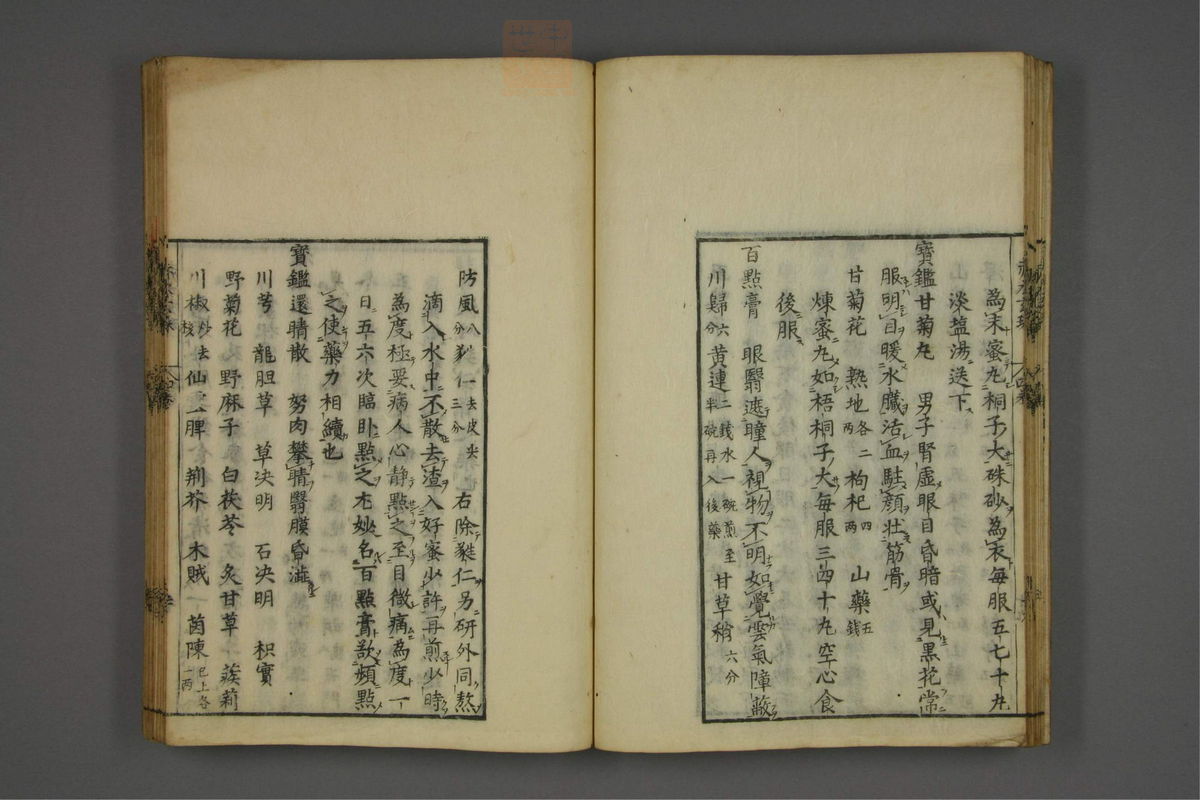 為末蜜丸桐子大硃砂為衣毎服五七十丸
淡塩湯送下
寳鑑甘菊丸　男子腎虚眼目昏暗或見黒花常
服明目暖水臓活血駐顔壮筋骨
甘菊花　熟地各二両　枸杞四両　山藥五銭
煉蜜丸如梧桐子大毎服三四十丸空心食
後服
百點膏　眼翳遮瞳人視物不明如覺雲氣障蔽
川歸六分　黄連二銭水一碗煎至半碗再入後藥　甘草稍六分
防風八分　蕤仁去皮尖三分　右除蕤仁另研外同熬
滴入水中不散去渣入好蜜少許再煎少時
為度極要病人心静點之至目微痛為度一
日五六次臨卧點之尤妙名百點膏欲頻點
之使藥力相續也
寳鑑還睛散　努肉攀睛翳膜昏澁
川芎　龍胆草　草决明　石决明　枳實
野菊花　野麻子　白茯苓　炙甘草　蒺莉
川椒炒去核　仙灵脾　荆芥　木賊　茵陳已上各一両